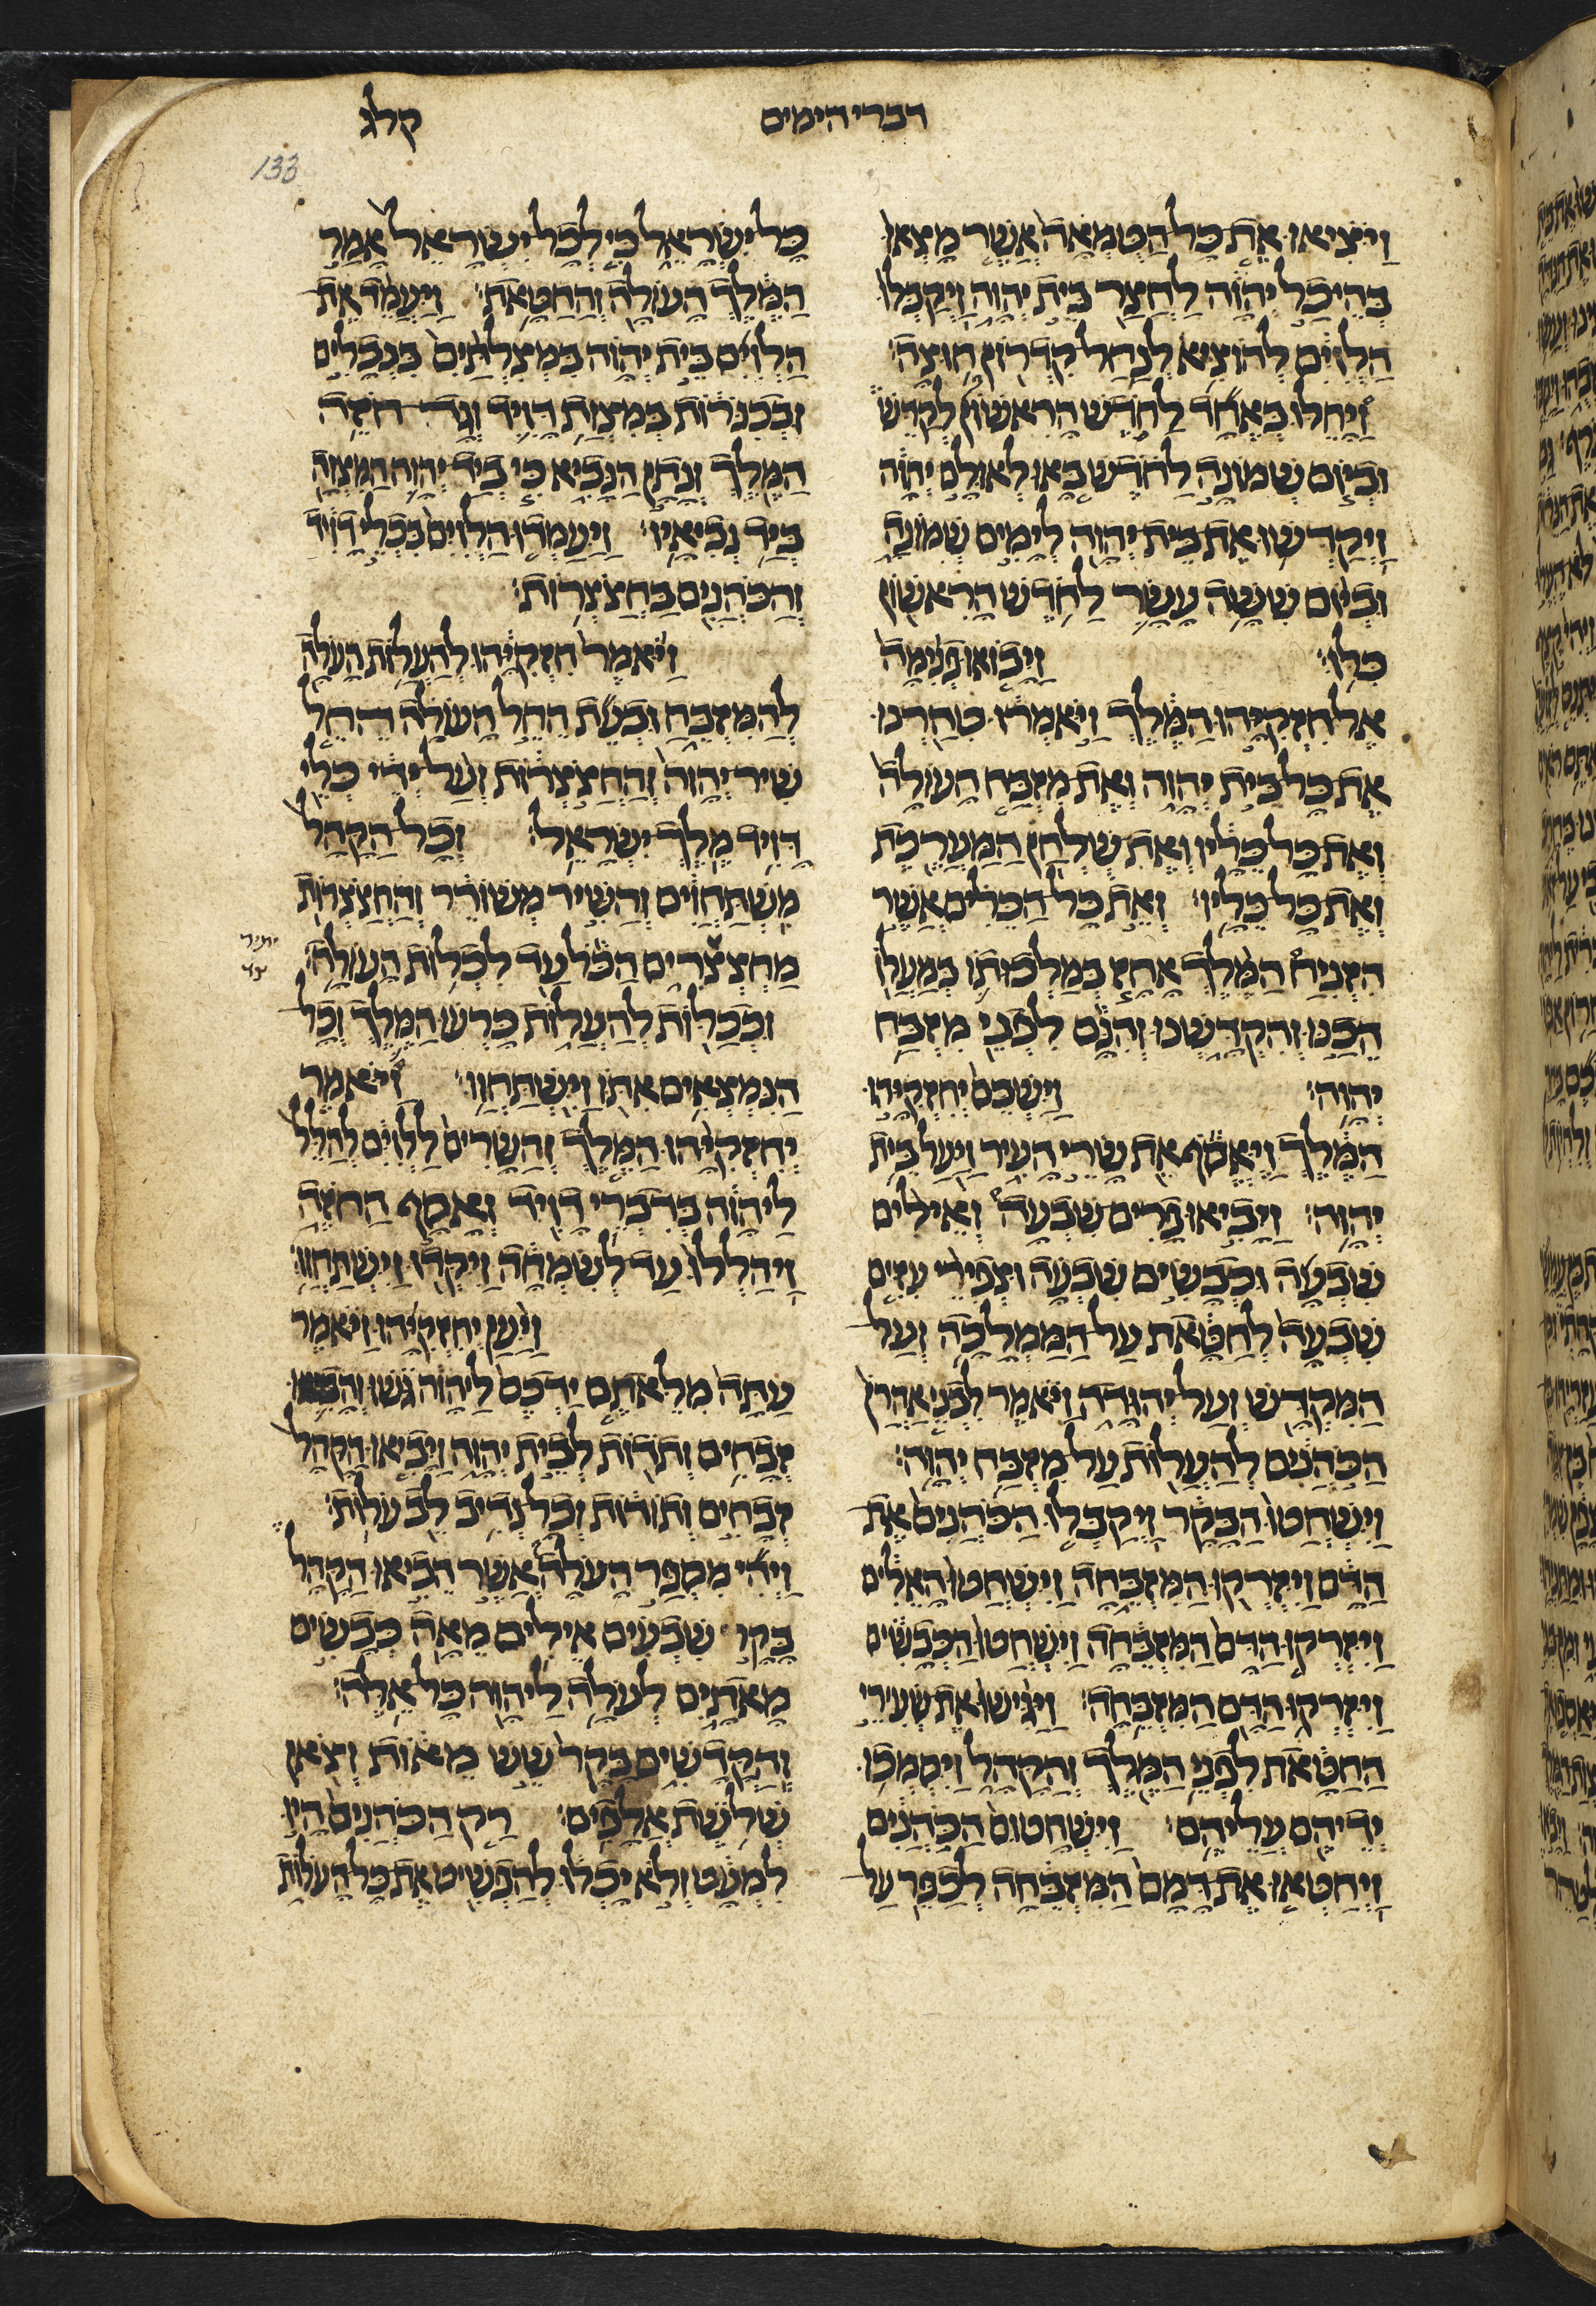 דברי הימים
קלג
133
ויציאו את כל הטמאה אשר מצאו
בהיכל יהוה לחצר בית יהוה ויקבלו
הלוים להוציא לנחל קדרון חוצה׃
ויחלו באחד לחדש הראשון לקדש
וביום שמונה לחדש באו לאולם יהוה
ויקדשו את בית יהוה לימים שמונה
וביום ששה עשר לחדש הראשון
כלו׃ ויבואו פנימה
אל חזקיהו המלך ויאמרו טהרנו
את כל בית יהוה ואת מזבח העולה
ואת כל כליו ואת שלחן המערכת
ואת כל כליו׃ ואת כל הכלים אשר
הזניח המלך אחז במלכותו במעלו
הכנו והקדשנו והנם לפני מזבח
יהוה׃ וישכם יחזקיהו
המלך ויאסף את שרי העיר ויעל בית
יהוה׃ ויביאו פרים שבעה ואילים
שבעה וכבשים שבעה וצפירי עזים
שבעה לחטאת על הממלכה ועל
המקדש ועל יהודה ויאמר לבני אהרן
הכהנים להעלות על מזבח יהוה׃
וישחטו הבקר ויקבלו הכהנים את
הדם ויזרקו המזבחה וישחטו האלים
ויזרקו הדם המזבחה וישחטו הכבשים
ויזרקו הדם המזבחה׃ ויגישו את שעירי
החטאת לפני המלך והקהל ויסמכו
ידיהם עליהם׃ וישחטום הכהנים
ויחטאו את דמם המזבחה לכפר על
כל ישראל כי לכל ישראל אמר
המלך העולה והחטאת׃ ויעמד את
הלוים בית יהוה במצלתים בנבלים
ובכנרות במצות דויד וגד חזה
המלך ונתן הנביא כי ביד יהוה המצוה
ביד נביאיו׃ ויעמדו הלוים בכלי דויד
והכהנים בחצצרות׃
ויאמר חזקיהו להעלות העלה
להמזבח ובעת החל העולה החל
שיר יהוה והחצצרות ועל ידי כלי
דויד מלך ישראל׃ וכל הקהל
משתחוים והשיר משורר והחצצרות
מחצצרים הכל עד לכלות העולה׃
יתיר
צ
וככלות להעלות כרעו המלך וכל
הנמצאים אתו וישתחוו׃ ויאמר
יחזקיהו המלך והשרים ללוים להלל
ליהוה בדברי דויד ואסף החזה
ויהללו עד לשמחה ויקדו וישתחוו׃
ויען יחזקיהו ויאמר
עתה מלאתם ידכם ליהוה גשו והביאו
זבחים ותודות לבית יהוה ויביאו הקהל
זבחים ותודות וכל נדיב לב עלות׃
ויהי מספר העלה אשר הביאו הקהל
בקר שבעים אילים מאה כבשים
מאתים לעלה ליהוה כל אלה׃
והקדשים בקר שש מאות וצאן
שלשת אלפים׃ רק הכהנים היו
למעט ולא יכלו להפשיט את כל העלות